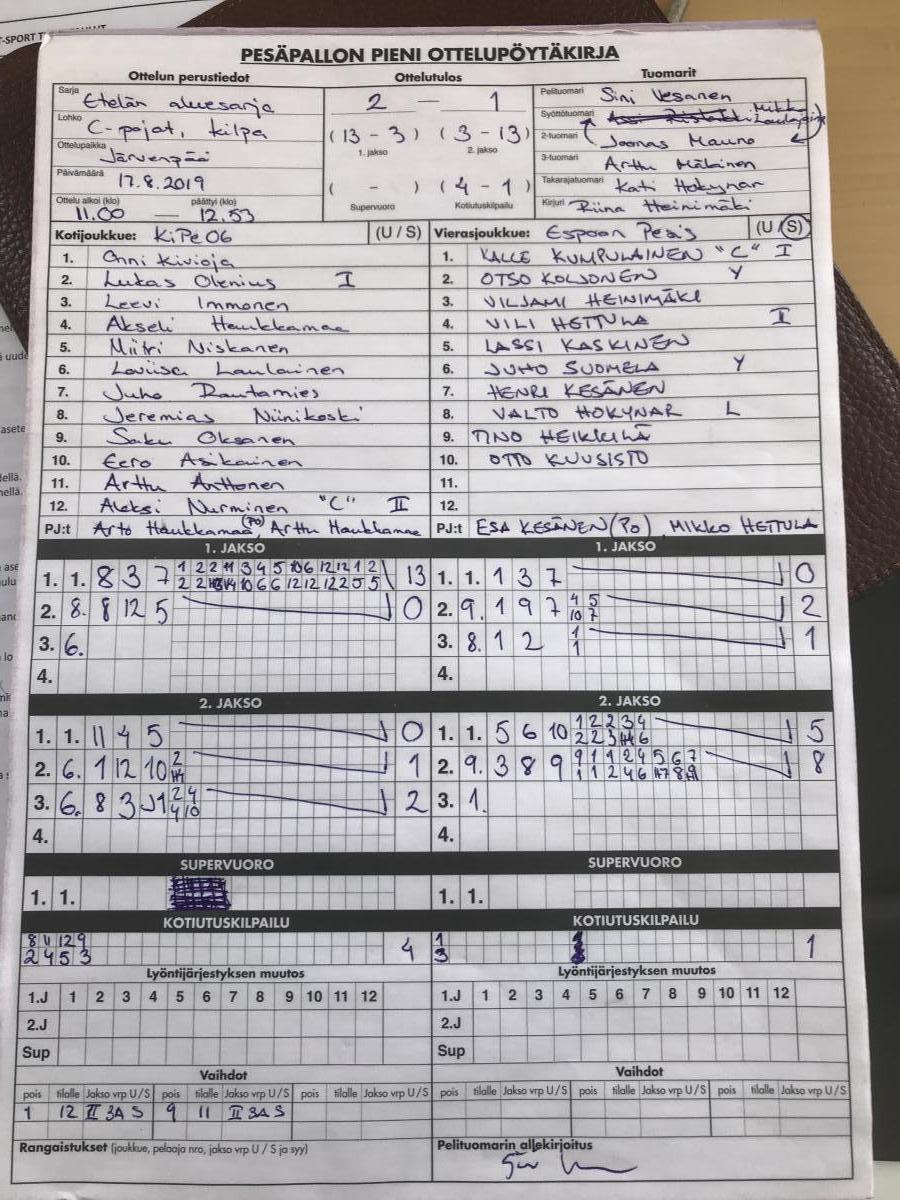 PESÄPALLON PIENI OTTELUPÖYTÄKIRJA
Ottelun perustiedot
Sarja Etelän aluesarja
Lohko C-pojat, kilpa
Ottelupaikka Järvenpää
Päivämäärä 17.8.2019
Ottelu alkoi (klo) päättyi (klo)
11.00 — 12.53
Ottelutulos
2 — 1
(13 - 3) (3 - 13)
1. jakso 2. jakso
( - ) (4 - 1)
Supervuoro Kotiutuskilpailu
Tuomarit
Pelituomari Sini Vesanen
Syöttötuomari Mikko
2-tuomari Joonas Mauno
3-tuomari Arttu Mälainen
Takarajatuomari Kati Hokynar
Kirjuri Riina Heinimäki
Kotijoukkue: KiPe 06 (U / S)
1. Onni Kivioja
2. Lukas Olenius I
3. Leevi Immonen
4. Akseli Haukkamaa
5. Miitri Niskanen
6. Loviisa Laulainen
7. Juho Rautamies
8. Jeremias Niinikoski
9. Saku Oksanen
10. Eero Asikainen
11. Arttu Anttonen
12. Aleksi Nurminen "C" II
PJ:t Arto Haukkamaa (PO), Arttu Haukkamaa
Vierasjoukkue: Espoon Pesis (U / S)
1. KALLE KUMPULAINEN "C" I
2. OTSO KOLJONEN Y
3. VILJAMI HEINIMÄKI
4. VILI HETTULA I
5. LASSI KASKINEN
6. JUHO SUOMELA Y
7. HENRI KESÄNEN
8. VALTO HOKYNAR L
9. TINO HEIKKILÄ
10. OTTO KUUSISTO
11.
12.
PJ:t ESA KESÄNEN (PO) MIKKO HETTULA
1. JAKSO
1. 1. 8 3 7 13
2. 8. 8 12 5 0
3. 6.
4.
1. JAKSO
1. 1. 1 3 7 0
2. 9. 1 9 7 4 5 2
10 7
3. 8. 1 2 1 1
1
4.
2. JAKSO
1. 1. 11 4 5 0
2. 6. 1 12 10 2 1
3. 6. 8 3 2 4 2
4 10
4.
2. JAKSO
1. 1. 5 6 10 1 2 2 3 4 5
2. 9. 3 8 9 9 1 1 2 4 5 6 7 8
3. 1.
4.
SUPERVUORO
1. 1.
SUPERVUORO
1. 1.
KOTIUTUSKILPAILU
8 11 12 9 4
2 4 5 3
KOTIUTUSKILPAILU
1 1
3
Lyöntijärjestyksen muutos
1.J 1 2 3 4 5 6 7 8 9 10 11 12
2.J
Sup
Lyöntijärjestyksen muutos
1.J 1 2 3 4 5 6 7 8 9 10 11 12
2.J
Sup
Vaihdot
pois tilalle Jakso vrp U/S pois tilalle Jakso vrp U/S pois tilalle Jakso vrp U/S
1 12 II 3A S 9 11 II 3A S
Vaihdot
pois tilalle Jakso vrp U/S pois tilalle Jakso vrp U/S pois tilalle Jakso vrp U/S
Rangaistukset (joukkue, pelaaja nro, jakso vrp U / S ja syy)
Pelituomarin allekirjoitus